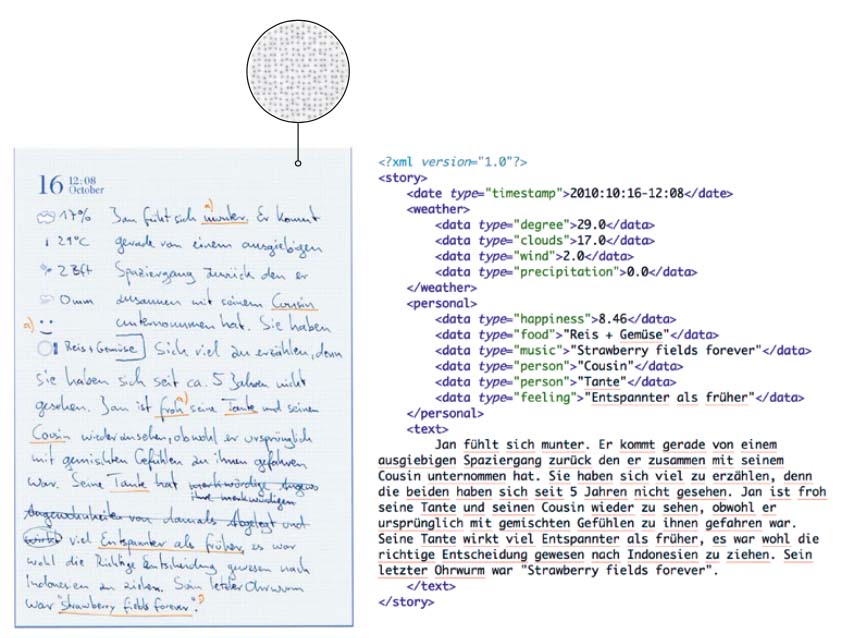 16 12:08
October
17% Jan fühlt sich munter. Er kommt
a)
29°C gerade von einem ausgiebigen
2 Bft Spaziergang zurück den er
0mm zusammen mit seinem Cousin
a) unternommen hat. Sie haben
Reis + Gemüse Sich viel zu erzählen, denn
sie haben sich seit ca. 5 Jahren nicht
gesehen. Jan ist froh seine Tante und seinen
a)
Cousin wiederzusehen, obwohl er ursprünglich
mit gemischten Gefühlen zu ihnen gefahren
war. Seine Tante hat merkwürdige
ihre merkwürdigen
Angewohnheiten von damals Abgelegt und
wirkt viel Entspannter als früher, es war
wohl die Richtige Entscheidung gewesen nach
Indonesien zu ziehen. Sein letzter Ohrwurm
war "strawberry fields forever".
<?xml version="1.0"?>
<story>
<date type="timestamp">2010:10:16-12:08</date>
<weather>
<data type="degree">29.0</data>
<data type="clouds">17.0</data>
<data type="wind">2.0</data>
<data type="precipitation">0.0</data>
</weather>
<personal>
<data type="happiness">8.46</data>
<data type="food">"Reis + Gemüse"</data>
<data type="music">"Strawberry fields forever"</data>
<data type="person">"Cousin"</data>
<data type="person">"Tante"</data>
<data type="feeling">"Entspannter als früher"</data>
</personal>
<text>
Jan fühlt sich munter. Er kommt gerade von einem
ausgiebigen Spaziergang zurück den er zusammen mit seinem
Cousin unternommen hat. Sie haben sich viel zu erzählen, denn
die beiden haben sich seit 5 Jahren nicht gesehen. Jan ist froh
seine Tante und seinen Cousin wieder zu sehen, obwohl er
ursprünglich mit gemischten Gefühlen zu ihnen gefahren war.
Seine Tante wirkt viel Entspannter als früher, es war wohl die
richtige Entscheidung gewesen nach Indonesien zu ziehen. Sein
letzter Ohrwurm war "Strawberry fields forever".